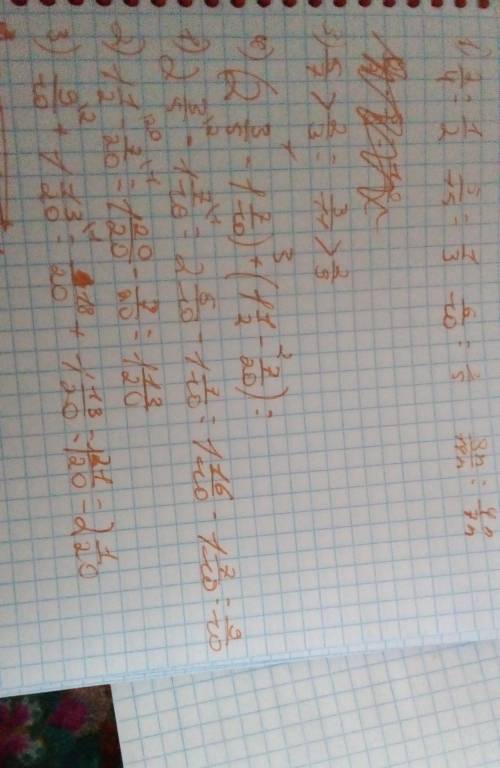 1) 2/4 = 1/2   5/15 = 1/3   6/10 = 3/5   8n/14n = 4n/7n
3) 5/7 > 2/3 = 3/11 > 2/9
4) (2 3/5 - 1 7/10) + (1 1/2 - 7/20) =
1) 2 3/5 - 1 7/10 = 2 6/10 - 1 7/10 = 1 16/10 - 1 7/10 = 9/10
2) 1 1/2 - 7/20 = 1 20/20 - 7/20 = 1 13/20
3) 9/10 + 1 13/20 = 18/20 + 1 13/20 = 1 21/20 = 2 1/20